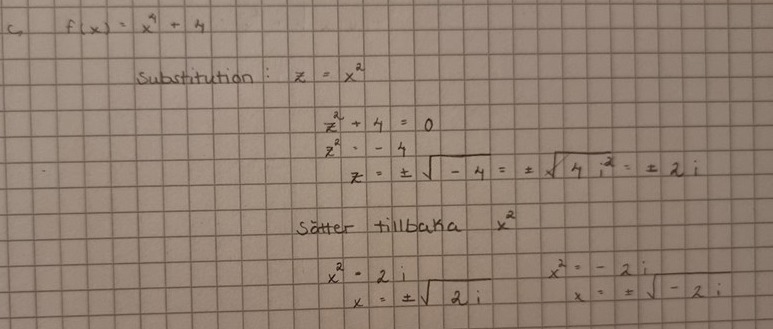 c, f(x) = x⁴ + 4
Substitution: z = x²
z² + 4 = 0
z² = - 4
z = ± √-4 = ± √4i² = ± 2i
Sätter tillbaka x²
x² = 2i    x² = - 2i
x = ± √2i    x = ± √-2i